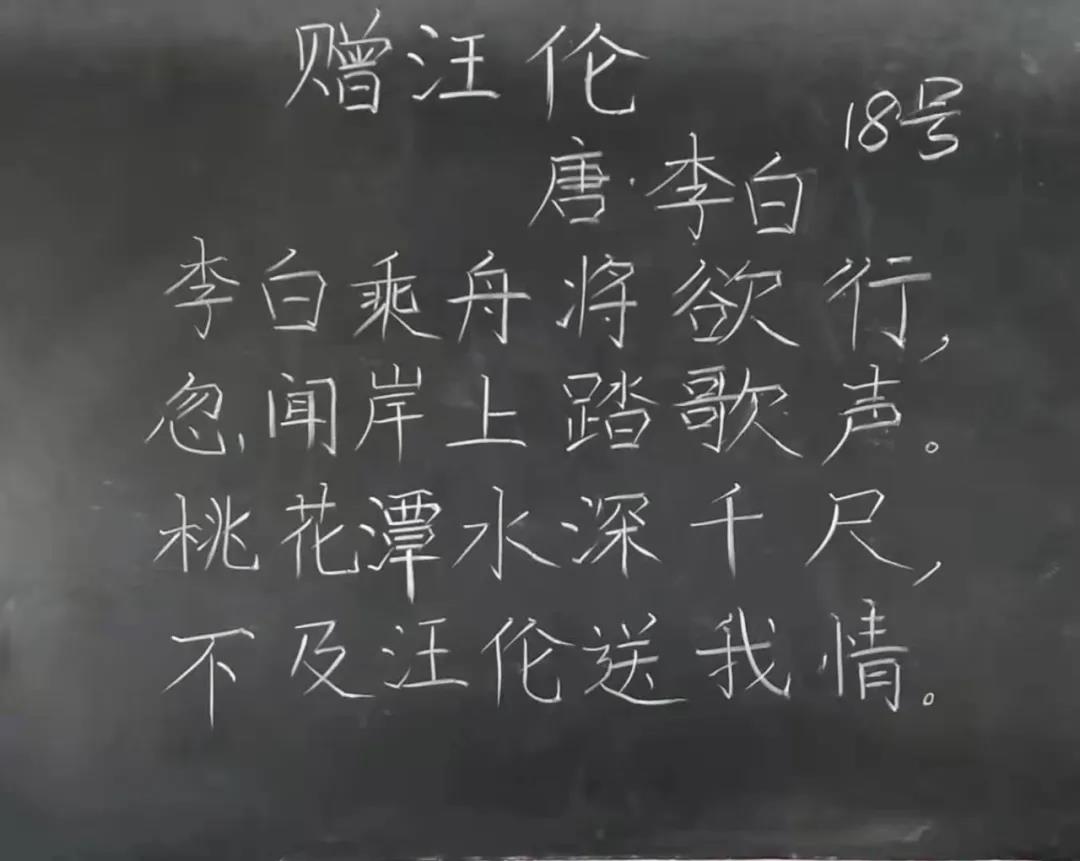 赠汪伦
18号
唐·李白
李白乘舟将欲行,
忽闻岸上踏歌声。
桃花潭水深千尺,
不及汪伦送我情。